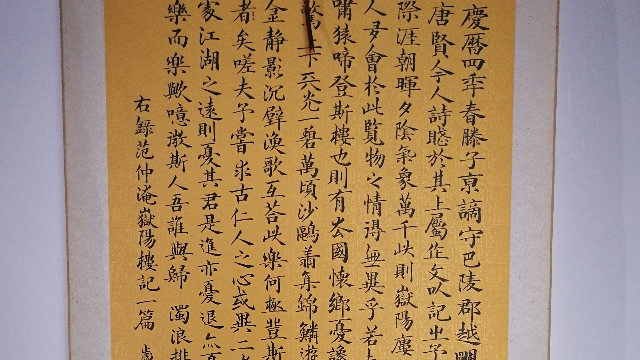 慶曆四年春滕子京謫守巴陵郡越明
唐賢今人詩賦於其上屬作文以記之予
際涯朝暉夕陰氣象萬千此則嶽陽樓
人多會於此覽物之情得無異乎若
嘯猿啼登斯樓也則有去國懷鄉憂讒
驚 下天光一碧萬頃沙鷗翕集錦鱗游
金靜影沉璧漁歌互荅此樂何極登斯
者矣嗟夫予嘗求古仁人之心或異二
處江湖之遠則憂其君是進亦憂退亦
樂而樂歟噫微斯人吾誰與歸 濁浪排
右錄范仲淹嶽陽樓記一篇 歲